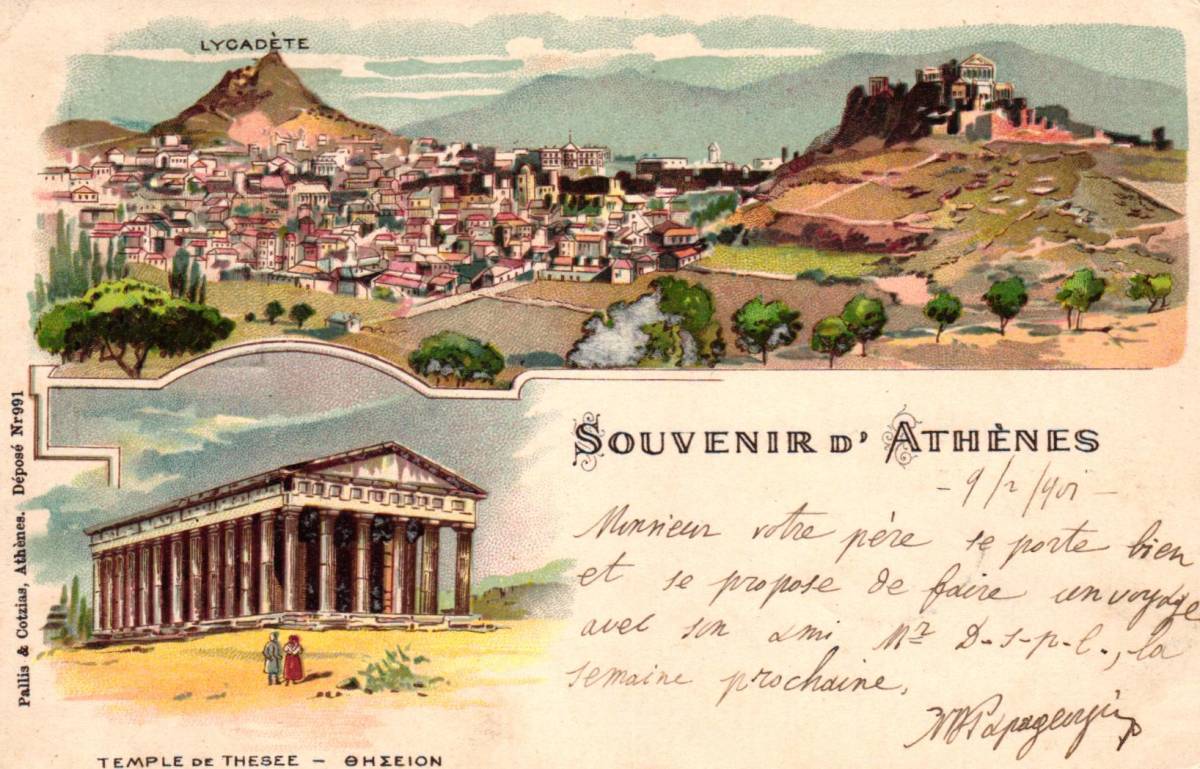 LYCADÈTE
SOUVENIR D' ATHÈNES
- 9/2/901 -
Monsieur votre père se porte bien
et se propose de faire un voyage
avec son ami Mr D-s-p-l., la
semaine prochaine,
Papageorgiu
Pallis & Cotzias, Athènes. Déposé Nr 991
TEMPLE DE THESEE – ΘΗΣΕΙΟΝ